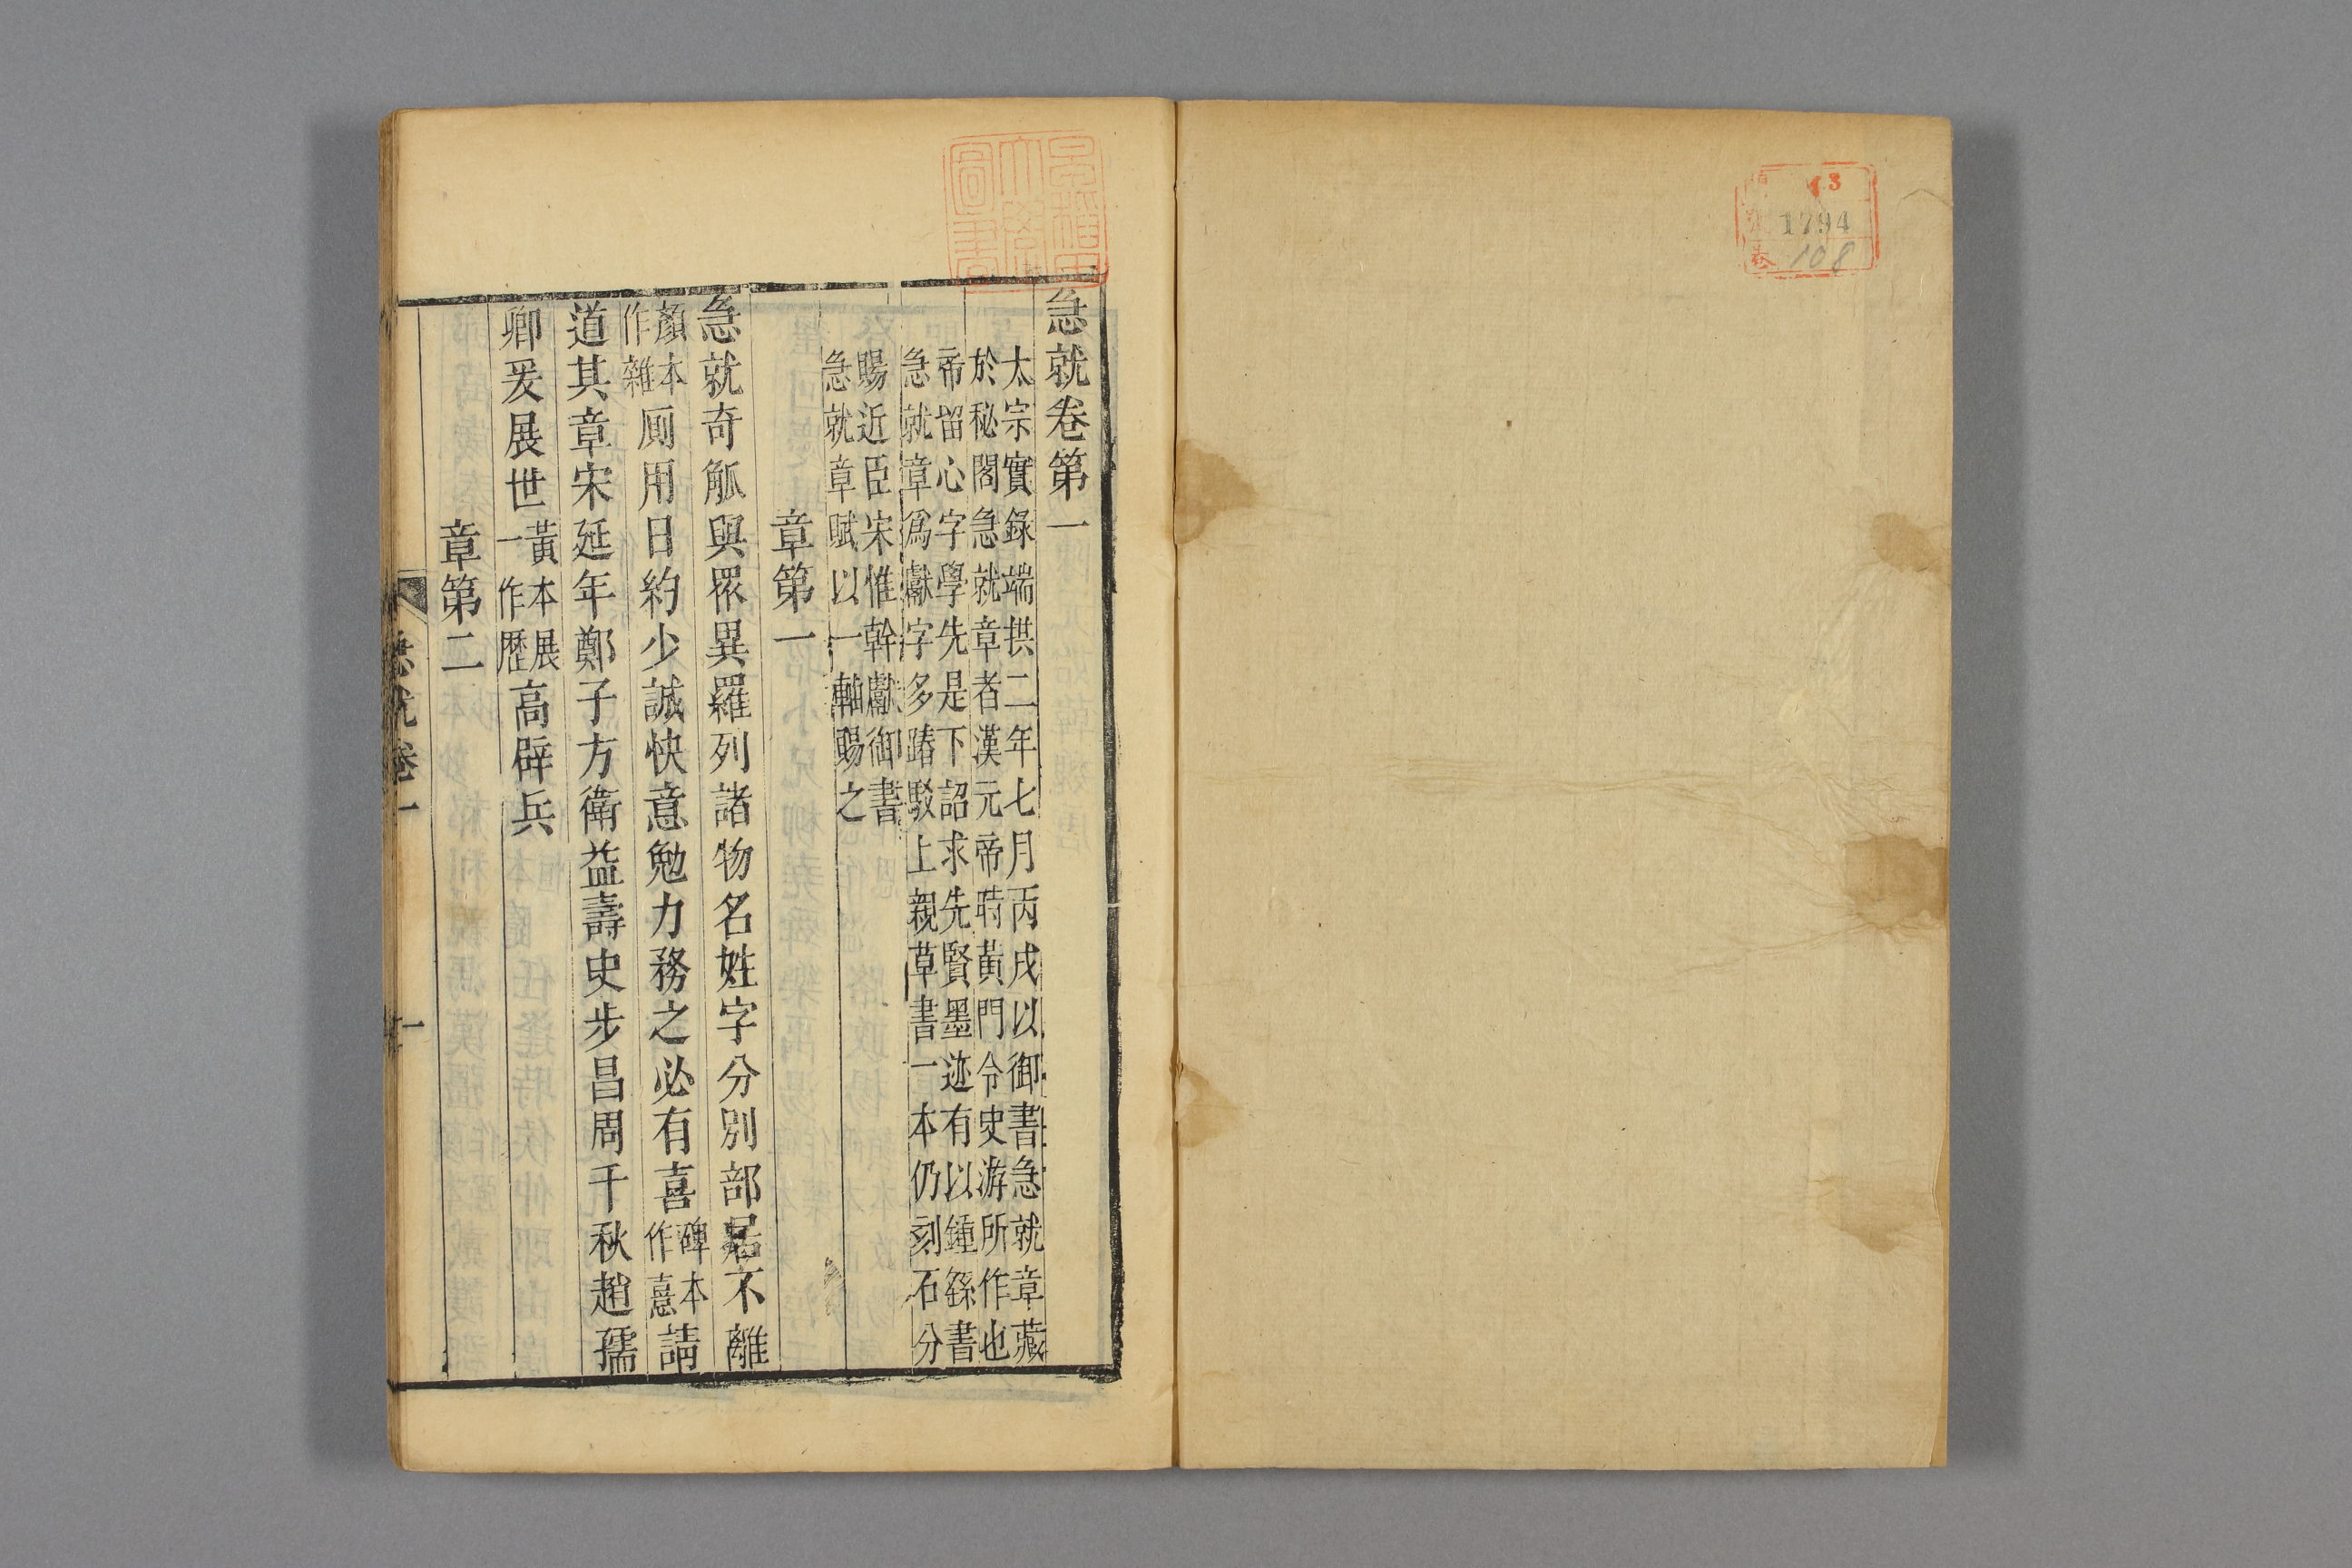 急就卷第一
太宗實錄端拱二年七月丙戌以御書急就章藏
於秘閣急就章者漢元帝時黃門令史游所作也
帝留心字學先是下詔求先賢墨迹有以鍾繇書
急就章爲獻字多踳駁上親草書一本仍刻石分
賜近臣宋惟幹獻御書
急就章賦以一軸賜之
章第一
急就奇觚與眾異羅列諸物名姓字分別部居不離
顏本作雜廁用日約少誠快意勉力務之必有喜碑本作憙請
道其章宋延年鄭子方衛益壽史步昌周千秋趙孺
卿爰展世黃本展一作歷高辟兵
章第二
急就卷一
一
13
1794
108